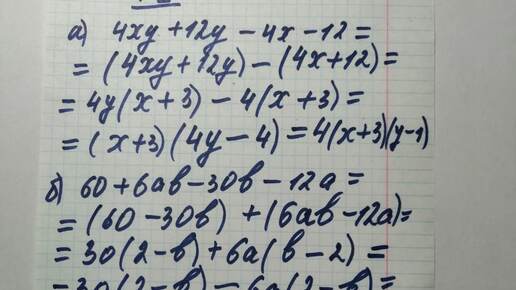 а) 4xy + 12y - 4x - 12 =
= (4xy + 12y) - (4x + 12) =
= 4y(x + 3) - 4(x + 3) =
= (x + 3)(4y - 4) = 4(x + 3)(y - 1)
б) 60 + 6ab - 30b - 12a =
= (60 - 30b) + (6ab - 12a) =
= 30(2 - b) + 6a(b - 2) =
= 30(2 - b) - 6a(2 - b) =